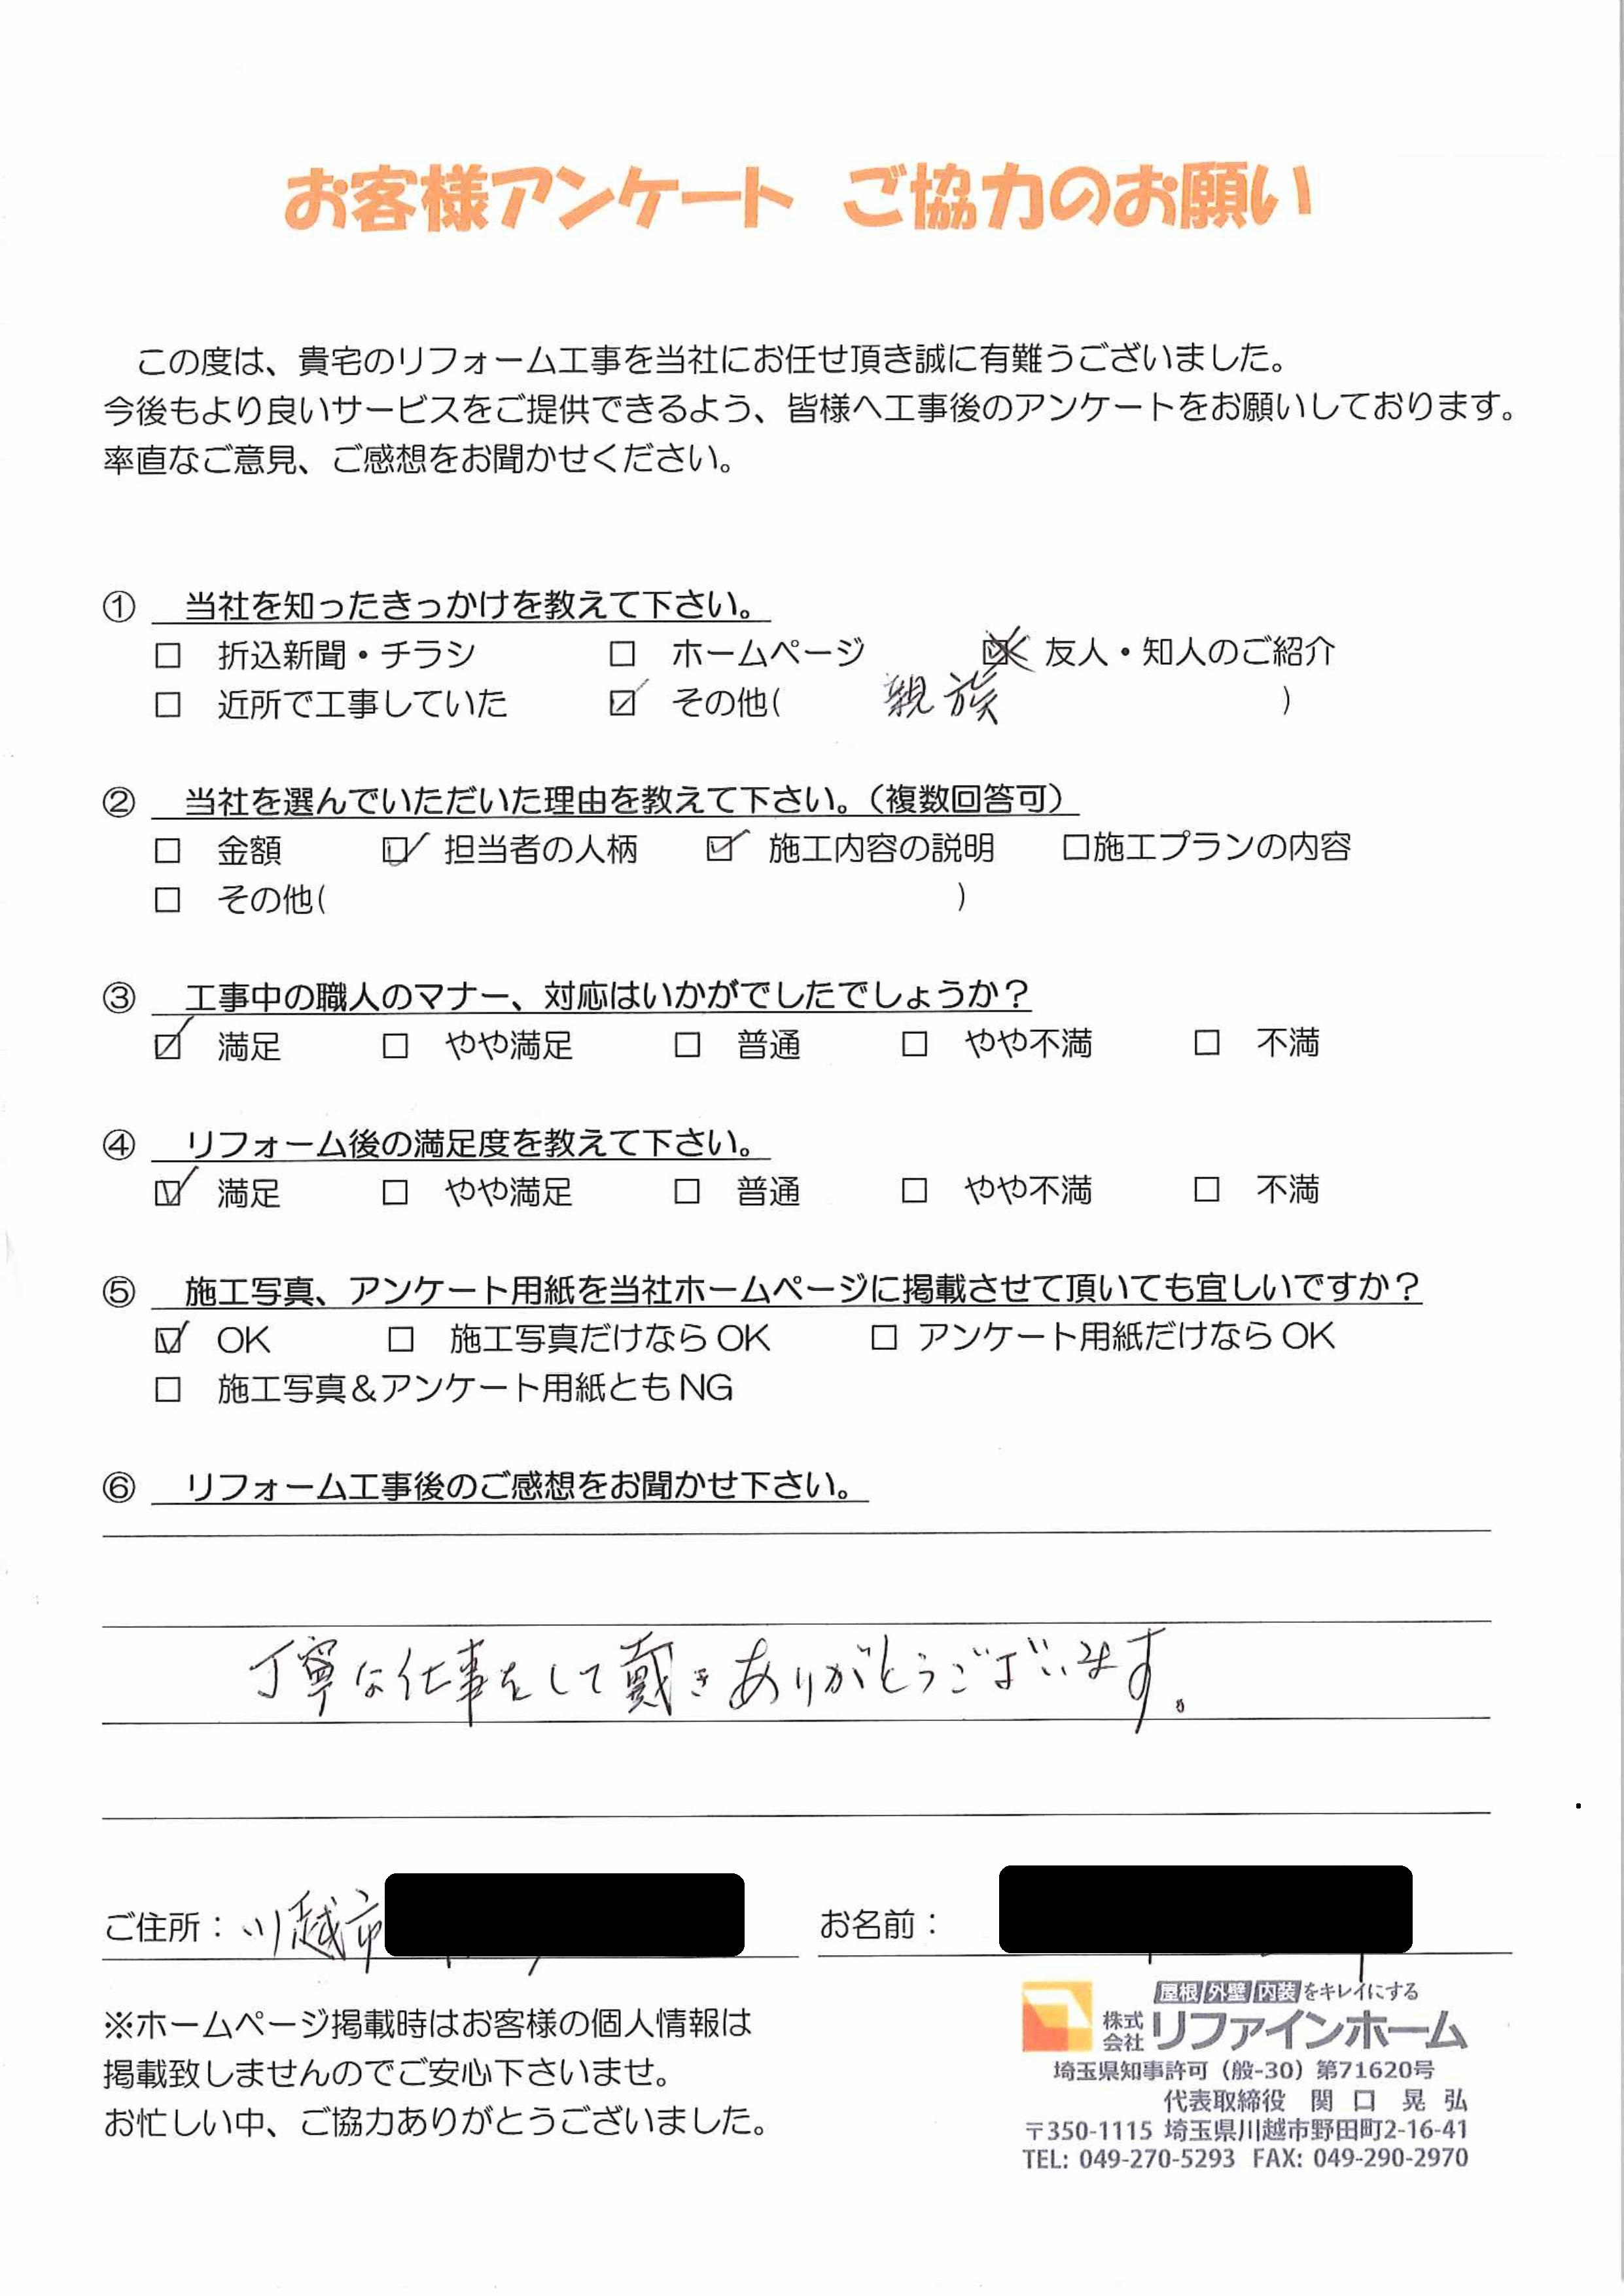 お客様アンケート ご協力のお願い
この度は、貴宅のリフォーム工事を当社にお任せ頂き誠に有難うございました。
今後もより良いサービスをご提供できるよう、皆様へ工事後のアンケートをお願いしております。
率直なご意見、ご感想をお聞かせください。
① 当社を知ったきっかけを教えて下さい。
□ 折込新聞・チラシ □ ホームページ ☑ 友人・知人のご紹介
□ 近所で工事していた ☑ その他( 親族 )
② 当社を選んでいただいた理由を教えて下さい。(複数回答可)
□ 金額 ☑ 担当者の人柄 ☑ 施工内容の説明 □施工プランの内容
□ その他( )
③ 工事中の職人のマナー、対応はいかがでしたでしょうか?
☑ 満足 □ やや満足 □ 普通 □ やや不満 □ 不満
④ リフォーム後の満足度を教えて下さい。
☑ 満足 □ やや満足 □ 普通 □ やや不満 □ 不満
⑤ 施工写真、アンケート用紙を当社ホームページに掲載させて頂いても宜しいですか?
☑ OK □ 施工写真だけなら OK □ アンケート用紙だけなら OK
□ 施工写真&アンケート用紙とも NG
⑥ リフォーム工事後のご感想をお聞かせ下さい。
丁寧な仕事をして戴きありがとうございます。
ご住所:川越市 お名前:
※ホームページ掲載時はお客様の個人情報は
掲載致しませんのでご安心下さいませ。
お忙しい中、ご協力ありがとうございました。
屋根 外壁 内装 をキレイにする
株式会社 リファインホーム
埼玉県知事許可(般-30)第71620号
代表取締役 関口 晃弘
〒350-1115 埼玉県川越市野田町2-16-41
TEL: 049-270-5293 FAX: 049-290-2970